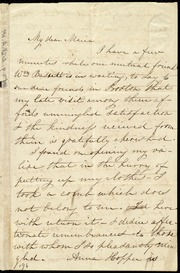 My dear Maria
I have a few
minutes while our mutual friend
Wm Bassett is in waiting, to say to
our dear friends in Boston that
my late visit among them af-
fords unmingled satisfaction
& the kindness received from
them is gratefully
I found on opening my va-
lise, that in the hurry of
putting up my clothes I
took a comb which does
not belong to me and
will return it
remembrances to those
with whom I so pleasantly min-
gled. Anna Hopper is